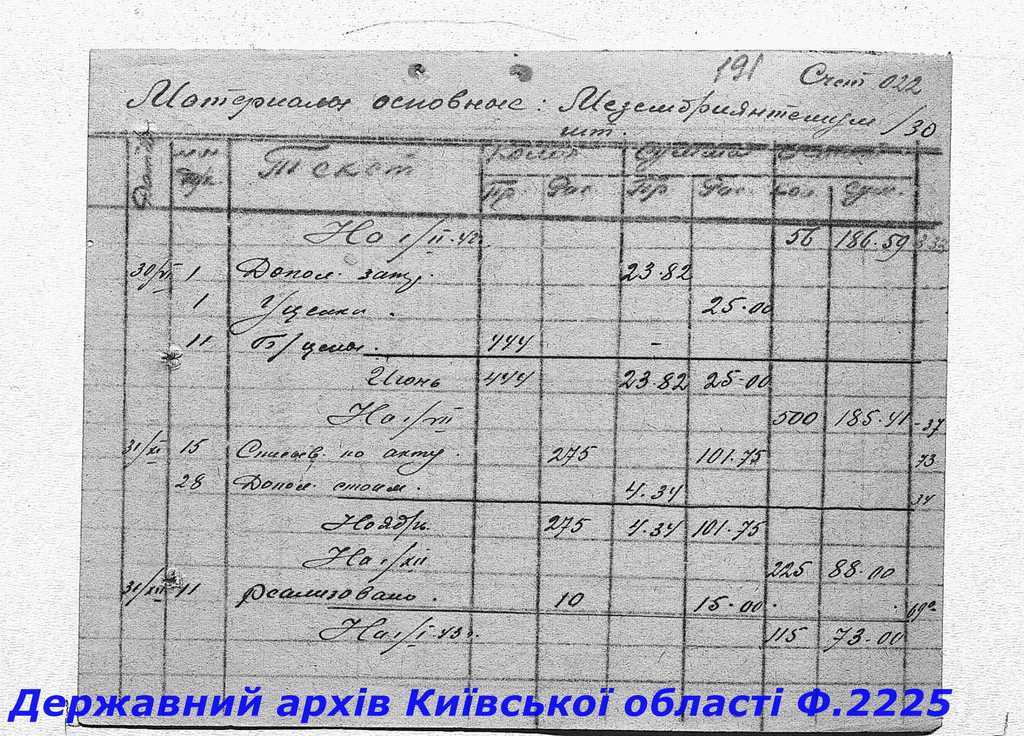 191 Счет 022
Материалы основные: Мезембриянтемум /30
шт.
Дата №№ Текст Колич Сумма
Пр. Рас. Пр Рас. кол. сум.
На 1/II-42г. 56 186.59
30/VI 1 Допол. затр. 23.82
1 Уценки. 25-00
11 Б/цены. 444 -
Июнь 444 23.82 25-00
На 1/VII 500 185.41 -37
31/XI 15 Списыв. по акту. 275 101.75 73
28 Допол. стоим. 4.34 34
Ноябрь 275 4.34 101-75
На 1/XII 225 88-00
31/XII 11 реализовано. 10 15-00.
На 1/I-43г. 115 73-00
Державний архів Київської області Ф.2225